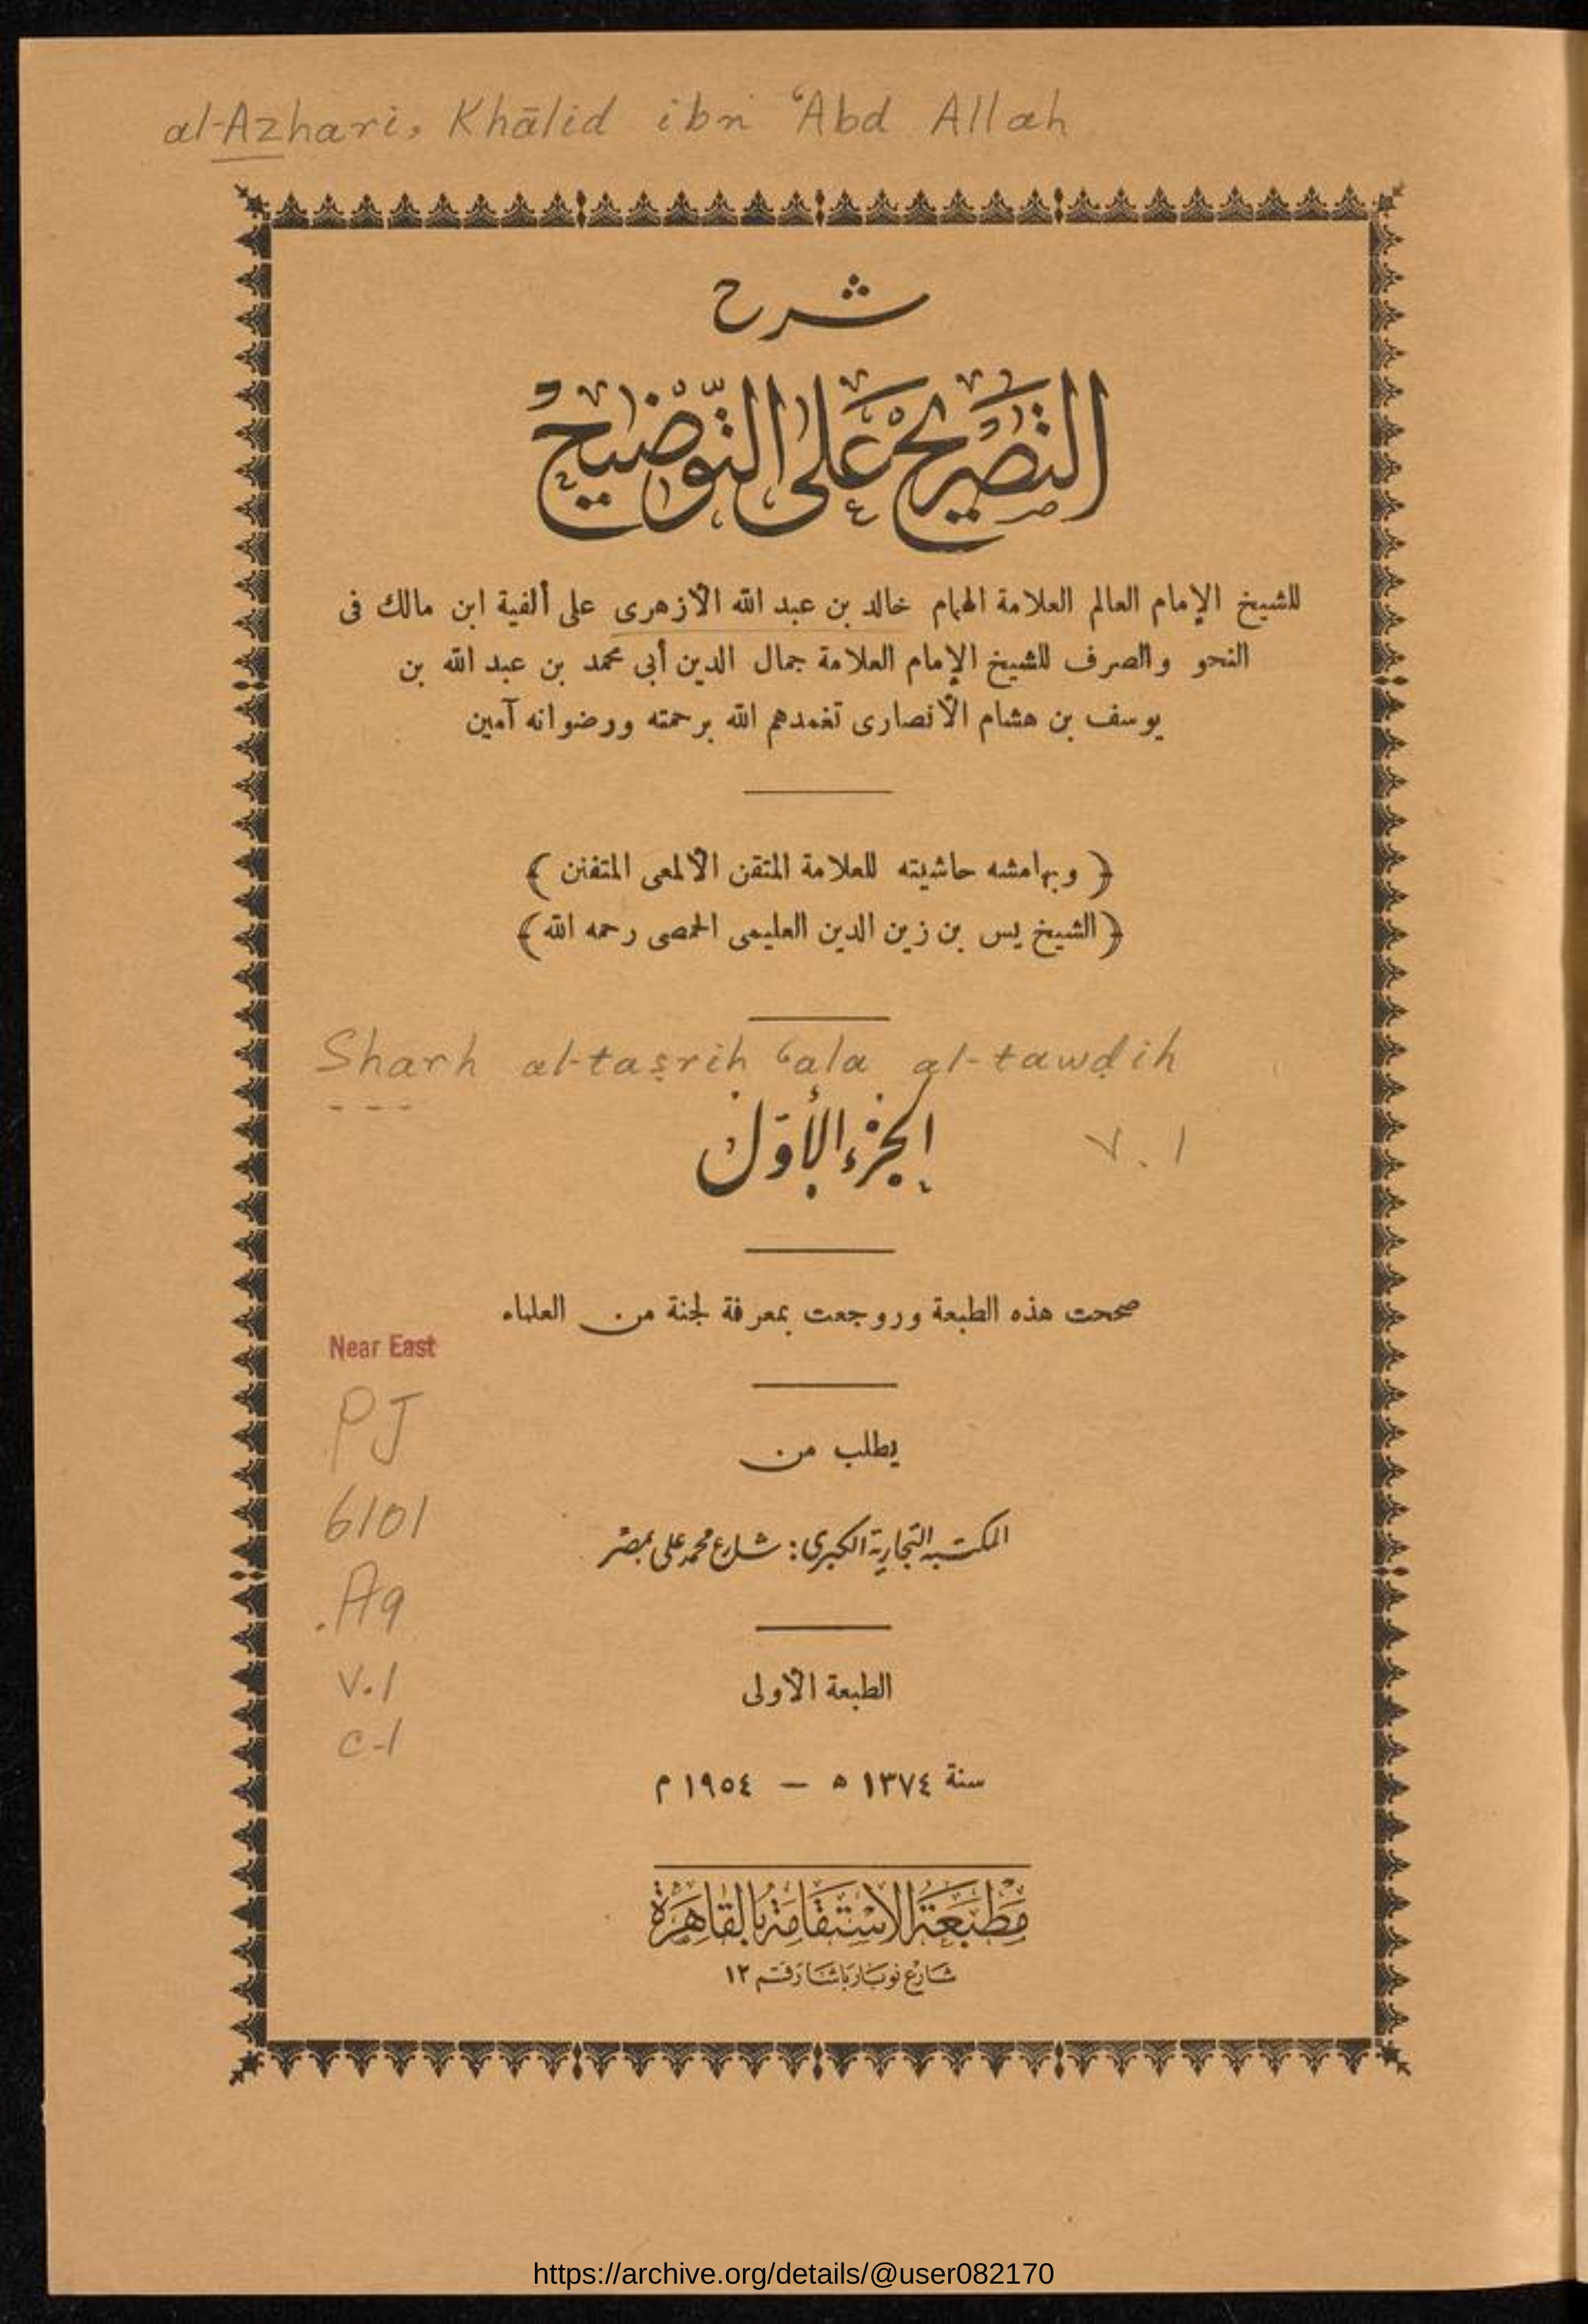 al-Azhari, Khālid ibn ʿAbd Allah
شرح
التصريح على التوضيح
للشيخ الإمام العالم العلامة الهمام خالد بن عبد الله الأزهرى على ألفية ابن مالك فى
النحو والصرف للشيخ الإمام العلامة جمال الدين أبى محمد بن عبد الله بن
يوسف بن هشام الأنصارى تغمدهم الله برحمته ورضوانه آمين
﴿ وبهامشه حاشيته للعلامة المتقن الألمعى المتفنن ﴾
﴿ الشيخ يس بن زين الدين العليمى الحمصى رحمه الله ﴾
Sharh al-taṣrih ʿala al-tawḍih
الجزء الأول
v. 1
صححت هذه الطبعة وروجعت بمعرفة لجنة من العلماء
Near East
PJ
6101
.A9
v.1
c-1
يطلب من
المكتبة التجارية الكبرى : شارع محمد على بمصر
الطبعة الأولى
سنة ١٣٧٤ ه — ١٩٥٤ م
مَطبَعَة الاسْتقَامَة بالقَاهِرَة
شارع نوبار باشا رقم ١٢
https://archive.org/details/@user082170